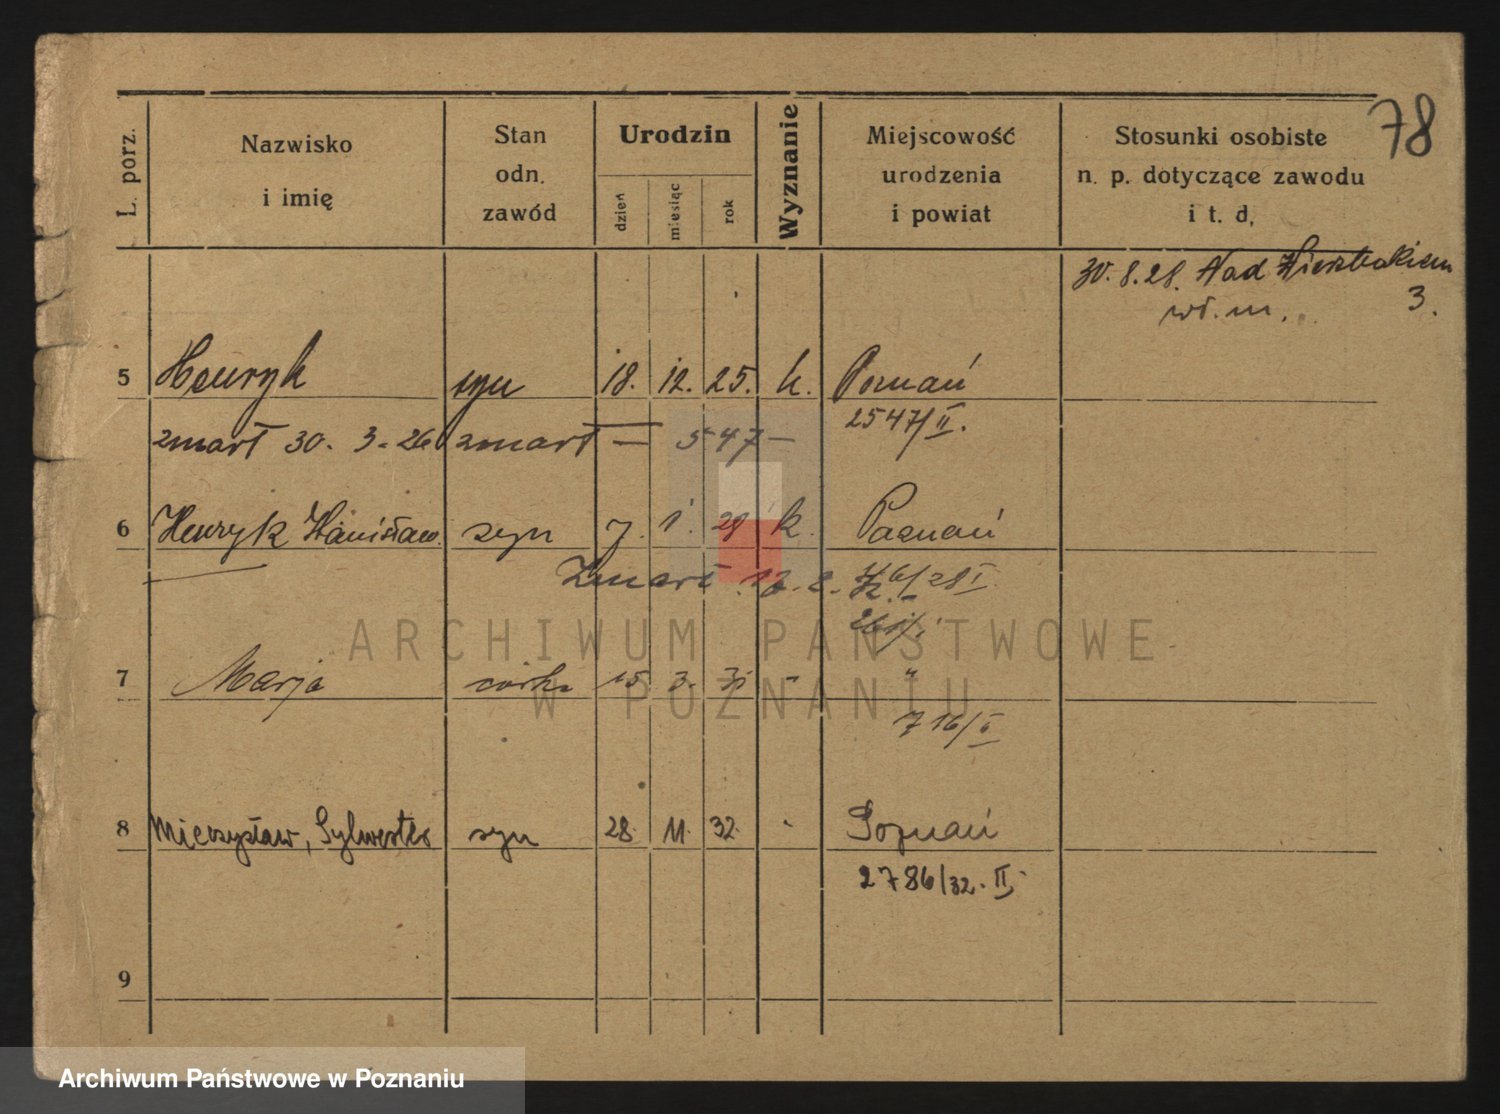 78
L. porz.
Nazwisko
i imię
Stan
odn.
zawód
Urodzin
dzień
miesiąc
rok
Wyznanie
Miejscowość
urodzenia
i powiat
Stosunki osobiste
n. p. dotyczące zawodu
i t. d.
30. 8. 28. Nad Wierzbakiem
3.
wł. m.
5 Henryk syn 18. 12. 25. k. Poznań
2547/II.
zmarł 30. 3. 26 zmarł — 547 —
6 Henryk Stanisław syn 7. 1. 28 k. Poznań
76/28 I
Zmarł 17. 2.
7 Marja córka 15 3. 31 " "
716/I
8 Mieczysław, Sylwester syn 28. 11. 32. Poznań
2786/32. II
9
ARCHIWUM PAŃSTWOWE
W POZNANIU
Archiwum Państwowe w Poznaniu